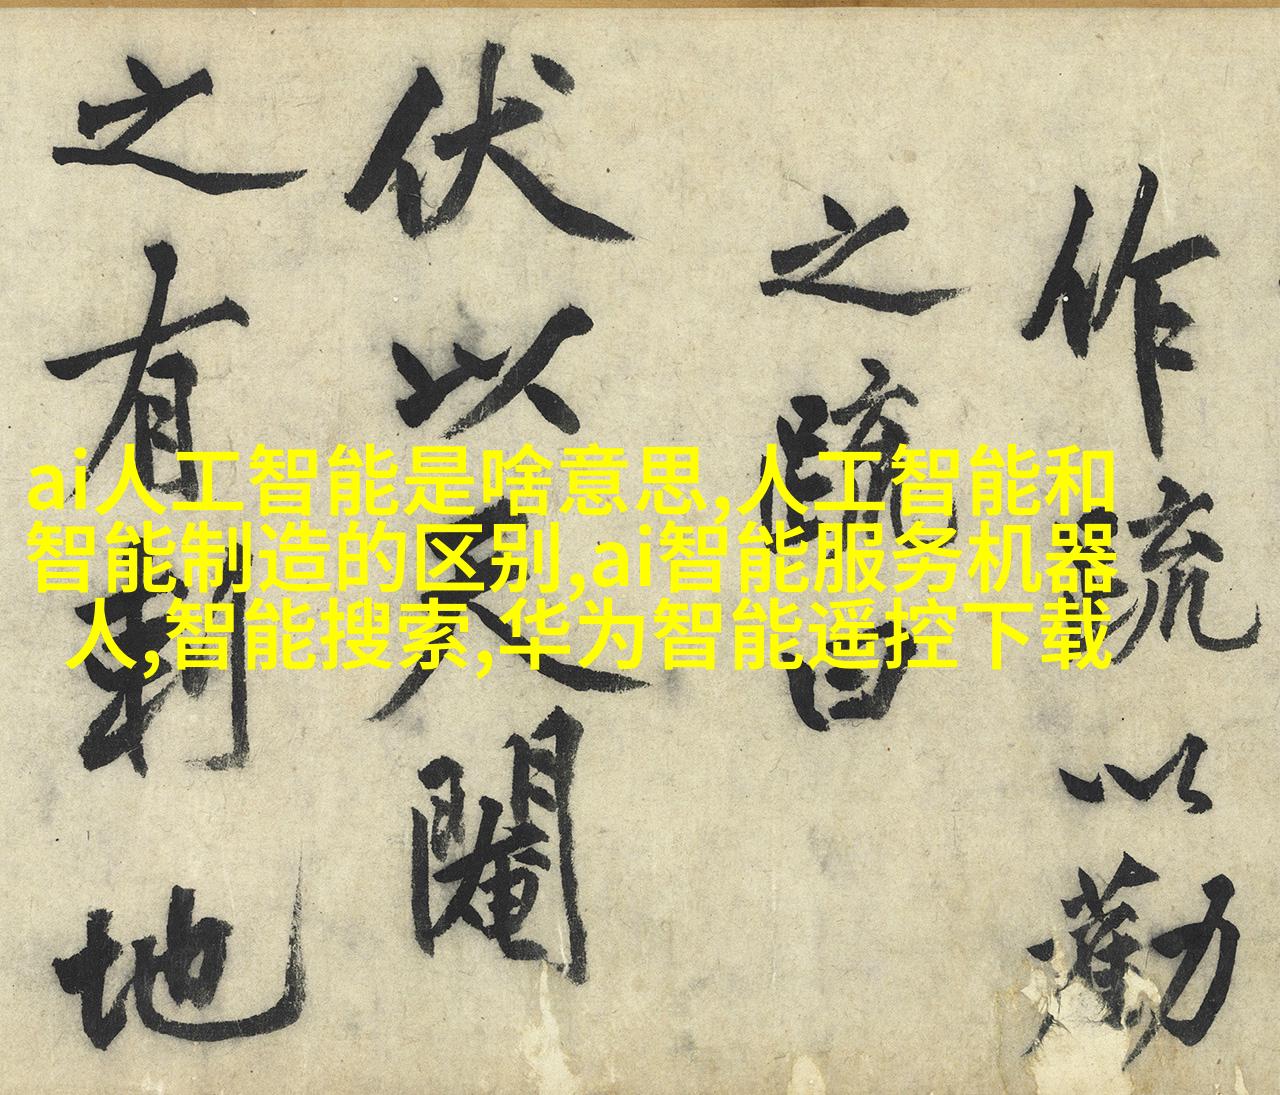 ai人工智能是啥意思,人工智能和
智能制造的区别,ai智能服务机器
人,智能搜索,华为智能遥控下载
作流以勸
之疏曰
伏以閹
之有刹地